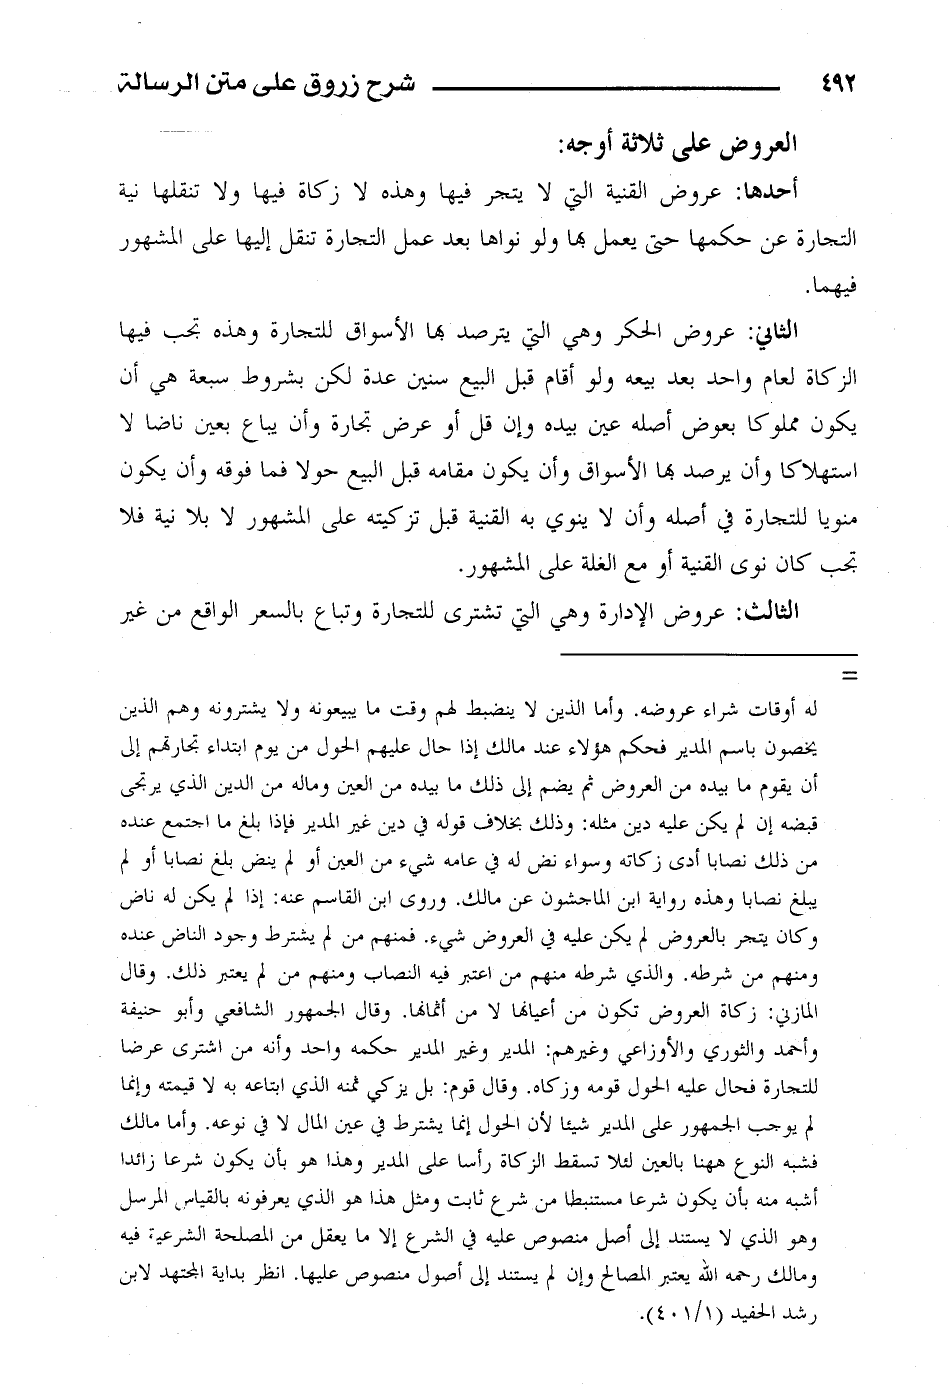 ٤٩٢ شرح زروق على متن الرسالة
العروض على ثلاثة أوجه:
أحدها: عروض القنية التي لا يتجر فيها وهذه لا زكاة فيها ولا تنقلها نية
التجارة عن حكمها حتى يعمل بها ولو نواها بعد عمل التجارة تنقل إليها على المشهور
فيهما.
الثاني: عروض الحكر وهي التي يترصد بها الأسواق للتجارة وهذه تجب فيها
الزكاة لعام واحد بعد بيعه ولو أقام قبل البيع سنين عدة لكن بشروط سبعة هي أن
يكون مملوكا بعوض أصله عين بيده وإن قل أو عرض تجارة وأن يباع بعين ناضا لا
استهلاكا وأن يرصد بها الأسواق وأن يكون مقامه قبل البيع حولا فما فوقه وأن يكون
منويا للتجارة في أصله وأن لا ينوي به القنية قبل تزكيته على المشهور لا بلا نية فلا
تجب كان نوى القنية أو مع الغلة على المشهور.
الثالث: عروض الإدارة وهي التي تشترى للتجارة وتباع بالسعر الواقع من غير
=
له أوقات شراء عروضه. وأما الذين لا ينضبط لهم وقت ما يبيعونه ولا يشترونه وهم الذين
يخصون باسم المدير فحكم هؤلاء عند مالك إذا حال عليهم الحول من يوم ابتداء تجارتهم إلى
أن يقوم ما بيده من العروض ثم يضم إلى ذلك ما بيده من العين وماله من الدين الذي يرتجى
قبضه إن لم يكن عليه دين مثله: وذلك بخلاف قوله في دين غير المدير فإذا بلغ ما اجتمع عنده
من ذلك نصابا أدى زكاته وسواء نض له في عامه شيء من العين أو لم ينض بلغ نصابا أو لم
يبلغ نصابا وهذه رواية ابن الماجشون عن مالك. وروى ابن القاسم عنه: إذا لم يكن له ناض
وكان يتجر بالعروض لم يكن عليه في العروض شيء. فمنهم من لم يشترط وجود الناض عنده
ومنهم من شرطه. والذي شرطه منهم من اعتبر فيه النصاب ومنهم من لم يعتبر ذلك. وقال
المازني: زكاة العروض تكون من أعيانها لا من أثمانها. وقال الجمهور الشافعي وأبو حنيفة
وأحمد والثوري والأوزاعي وغيرهم: المدير وغير المدير حكمه واحد وأنه من اشترى عرضا
للتجارة فحال عليه الحول قومه وزكاه. وقال قوم: بل يزكي ثمنه الذي ابتاعه به لا قيمته وإنما
لم يوجب الجمهور على المدير شيئا لأن الحول إنما يشترط في عين المال لا في نوعه. وأما مالك
فشبه النوع ههنا بالعين لئلا تسقط الزكاة رأسا على المدير وهذا هو بأن يكون شرعا زائدا
أشبه منه بأن يكون شرعا مستنبطا من شرع ثابت ومثل هذا هو الذي يعرفونه بالقياس المرسل
وهو الذي لا يستند إلى أصل منصوص عليه في الشرع إلا ما يعقل من المصلحة الشرعية فيه
ومالك رحمه الله يعتبر المصالح وإن لم يستند إلى أصول منصوص عليها. انظر بداية المجتهد لابن
رشد الحفيد (٤٠١/١).